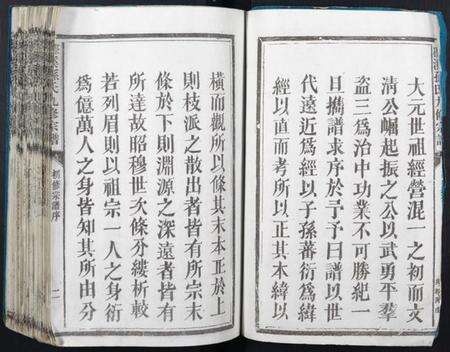 大元世祖經營混一之初而文
清公崛起振之公以武勇平羣
盜三為治中功業不可勝紀一
旦攜譜求序於予予曰譜以世
代遠近為經以子孫蕃衍為緯
經以直而考所以正其本緯以
橫而觀所以條其末本正於上
則枝派之散出者皆有所宗末
條於下則淵源之深遠者皆有
所達故昭穆世次條分縷析較
若列眉則以祖宗一人之身衍
為億萬人之身皆知其所由分
氏九修宗譜
初修宗譜序
二